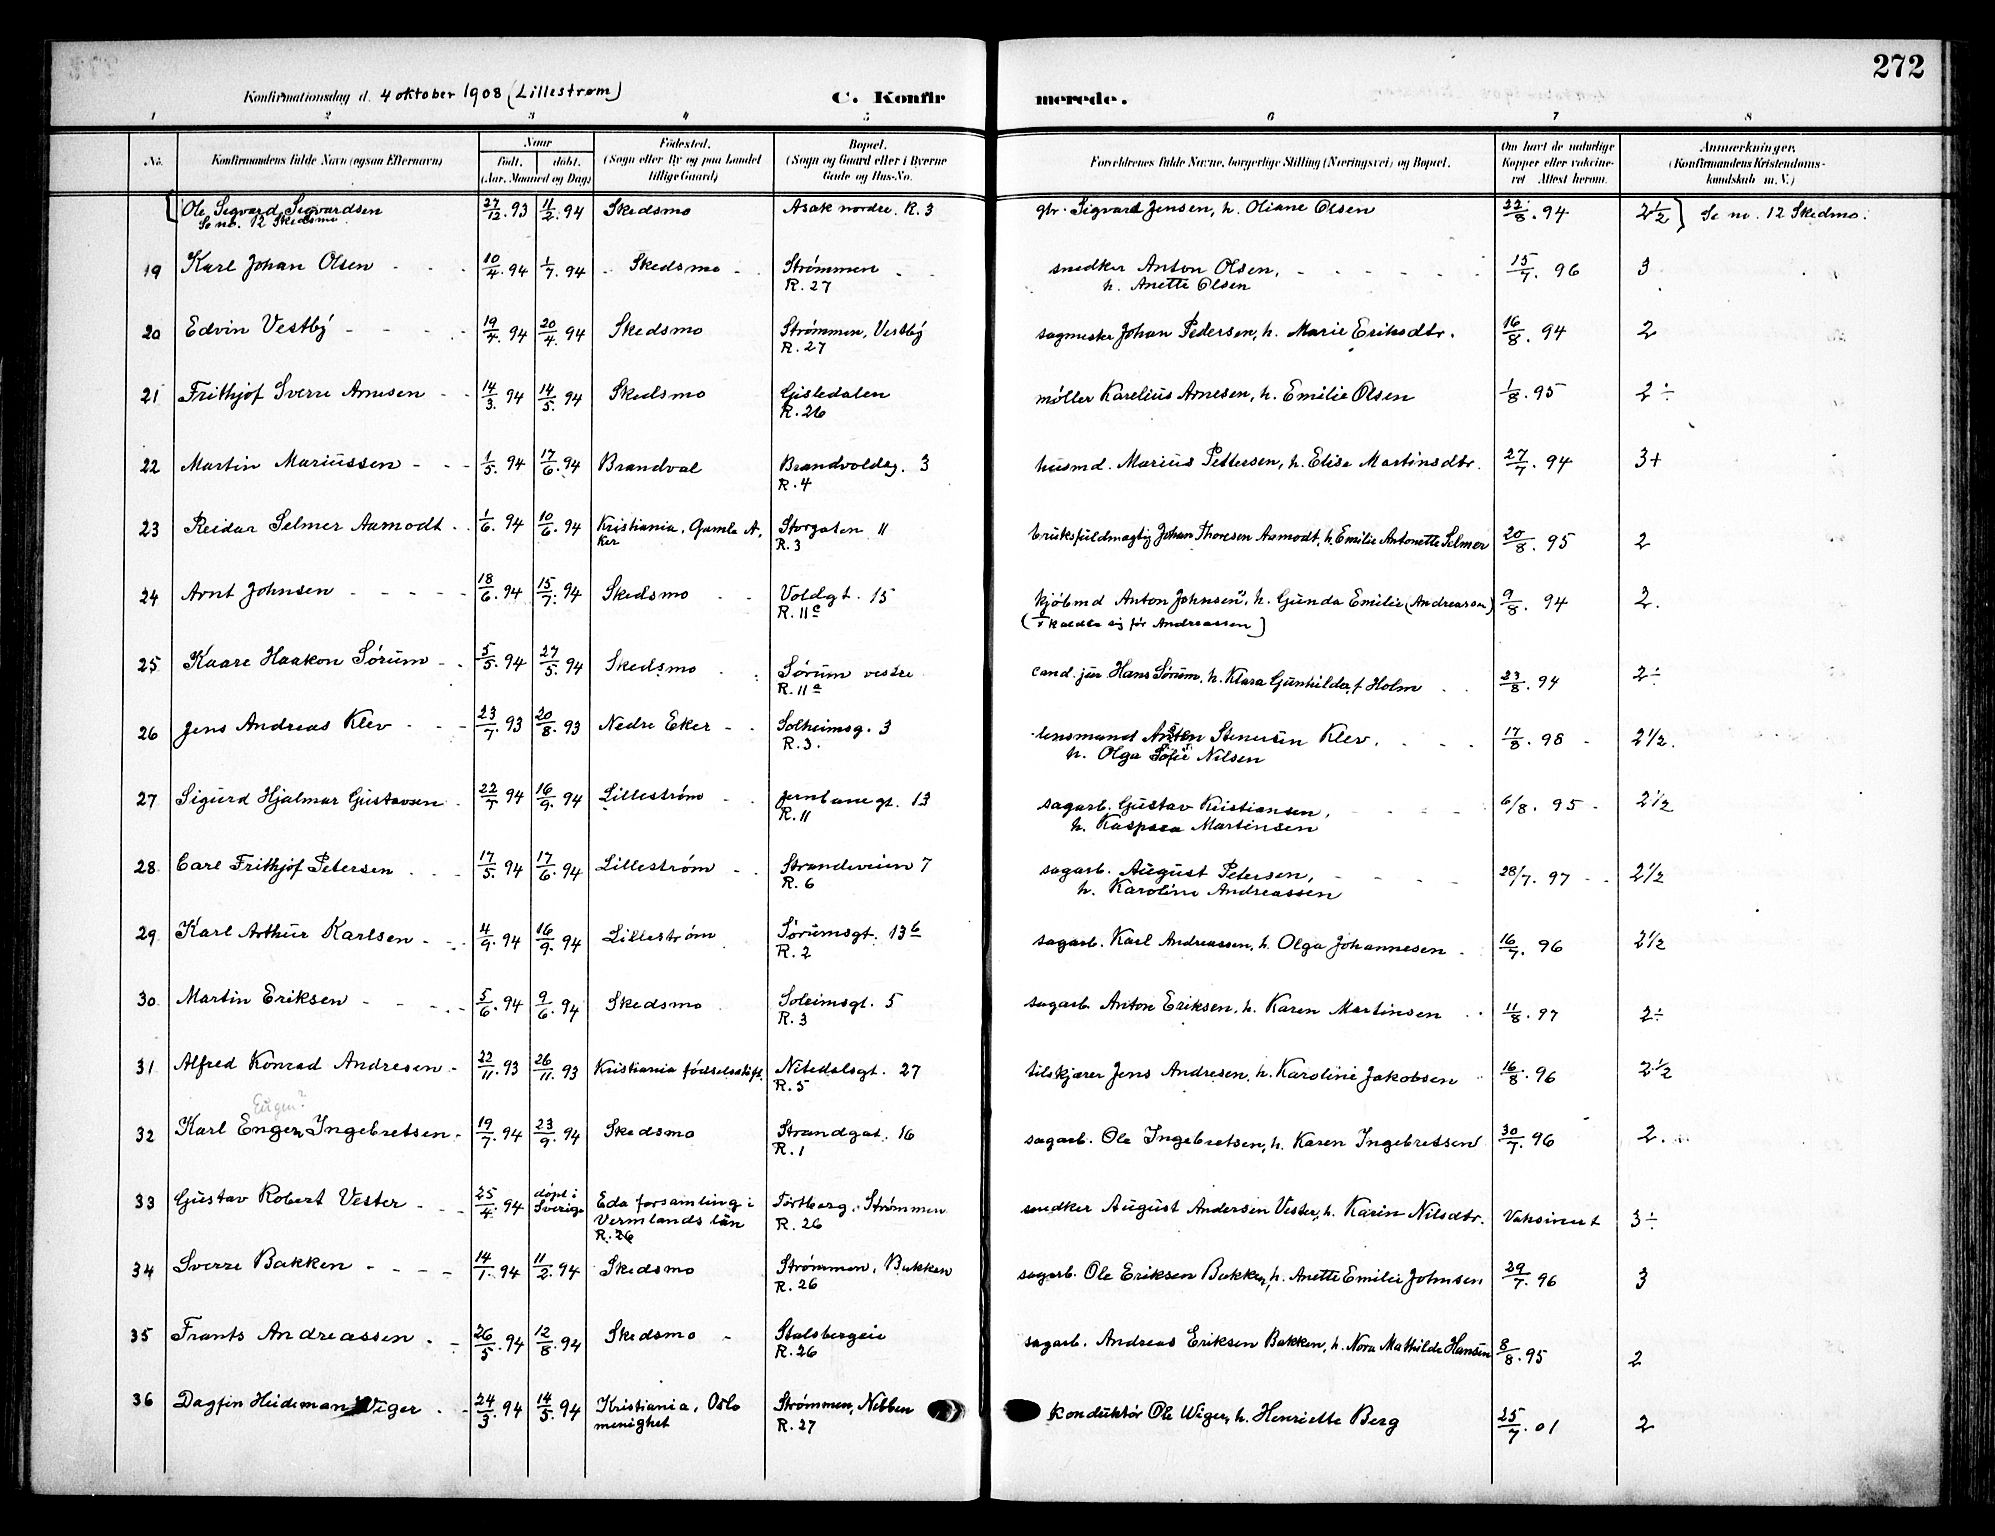 272
Konfirmationsdag d. 4 oktober 1908 (Lillestrøm) C. Konfirmerede.
1 2 3 4 5 6 7 8
No. Konfirmandens fulde Navn (ogsaa Efternavn) Naar født. døbt. (Aar, Maaned og Dag) Fødested. (Sogn eller By og paa Landet tillige Gaard) Bopæl. (Sogn og Gaard eller i Byerne Gade og Hus-No. Forældrenes fulde Navne, borgerlige Stilling (Næringsvei) og Bopæl. Om havt de naturlige Kopper eller vakcineret Attest herom. Anmærkninger. (Konfirmandens Kristendomskundskab m. V.)
Ole Sigvard Sigvardsen 27/12. 93 11/2. 94 Skedsmo Asak nordre. R. 3 gbr. Sigvard Jensen, h. Oliane Olsen 22/8. 94 2 1/2 Se nr. 12 Skedsmo.
Se no. 12 Skedsmo
19 Karl Johan Olsen 10/4. 94 1/7. 94 Skedsmo Strømmen snedker Anton Olsen, 15/7. 96 3
R. 27 h. Anette Olsen
20 Edvin Vestby 19/7. 94 20/4. 94 Skedsmo Strømmen, Vestby sagmester Johan Pedersen, h. Marie Eriksdtr. 16/8. 94 2
R. 27
21 Frithjof Sverre Arnesen 14/3. 94 14/5. 94 Skedsmo Gisledalen møller Karelius Arnesen, h. Emilie Olsen 1/8. 95 2 ÷
R. 26
22 Martin Mariussen 1/5. 94 17/6. 94 Brandval Brandvoldsg. 3 husmd. Marius Pettersen, h. Elise Martinsdtr. 27/7. 94 3+
R. 4
23 Reidar Selmer Aamodt 1/6. 94 10/6. 94 Kristiania, Gamle A, Storgaten 11 bruksfuldmægtig Johan Thoresen Aamodt, h. Emilie Antonette Selmer 20/8. 95 2
ker R. 3
24 Arnt Johnsen 18/6. 94 15/7. 94 Skedsmo Voldgt. 15 kjøbmd Anton Johnsen", h. Gunda Emilie (Andreassen) 9/8. 94 2.
R. 11c (" kaldte sig før Andreassen)
25 Kaare Haakon Sørum 5/5. 94 27/5. 94 Skedsmo Sørum vestre cand. jur Hans Sørum, h. Klara Gunhilda, f Holm 23/8. 94 2 ÷
R. 11a
26 Jens Andreas Klev 23/7. 93 20/8. 93 Nedre Eker Solheimsg. 3 lensmand Anton Stenersen Klev, 17/8. 98 2 1/2.
R. 3. h. Olga Sofie Nilsen
27 Sigurd Hjalmar Gustavsen 22/7. 94 16/9. 94 Lillestrøm Jernbanegt. 13 sagarb. Gustav Kristiansen, 6/8. 95 2 1/2
R. 11 h. Kaspara Martinsen
28 Carl Frithjof Petersen 17/5. 94 17/6. 94 Lillestrøm Strandveien 7 sagarb. August Petersen, 28/7. 97 2 1/2
R. 6 h. Karoline Andreassen
29 Karl Arthur Karlsen 4/9. 94 16/9. 94 Lillestrøm Sørumsgt. 13b sagarb. Karl Andreassen, h. Olga Johannesen 16/7. 96 2 1/2
R. 2
30 Martin Eriksen 5/6. 94 9/6. 94 Skedsmo Soleimsgt. 5 sagarb. Anton Eriksen, h. Karen Martinsen 11/8. 97 2 ÷
R. 3
31 Alfred Konrad Andresen 22/11. 93 26/11. 93 Kristiania fødselsstift. Nitedalsgt. 27 tilskjærer Jens Andresen, h. Karoline Jakobsen 16/8. 96 2 1/2
R. 5
Eugen?
32 Karl Engen Ingebretsen 19/7. 94 23/9. 94 Skedsmo Strandgat. 16 sagarb. Ole Ingebretsen, h. Karen Ingebretsen 30/7. 96 2.
R. 1
33 Gustav Robert Vester 25/4. 94 døpt i Sverige Eda forsamling i Tortberg, Strømmen snedker August Andersen Vester, h. Karin Nilsdtr. Vaksinert 3 ÷
Vermlands län R. 26
R. 26
34 Sverre Bakken 14/1. 94 11/2. 94 Skedsmo Strømmen, Bakken sagarb. Ole Eriksen Bakken, h. Anette Emilie Johnsen 29/7. 96 3
R. 26
35 Frants Andreassen 26/5. 94 12/8. 94 Skedsmo Stalsbergeie sagarb. Andreas Eriksen Bakken, h. Nora Mathilde Hansen 8/8. 95 2
R. 26
36 Dagfin Heideman Wiger 24/3. 94 14/5. 94 Kristiania, Oslo Strømmen, Nebben konduktør Ole Wiger, h. Henriette Berg 25/7. 01 2
menighet R. 27